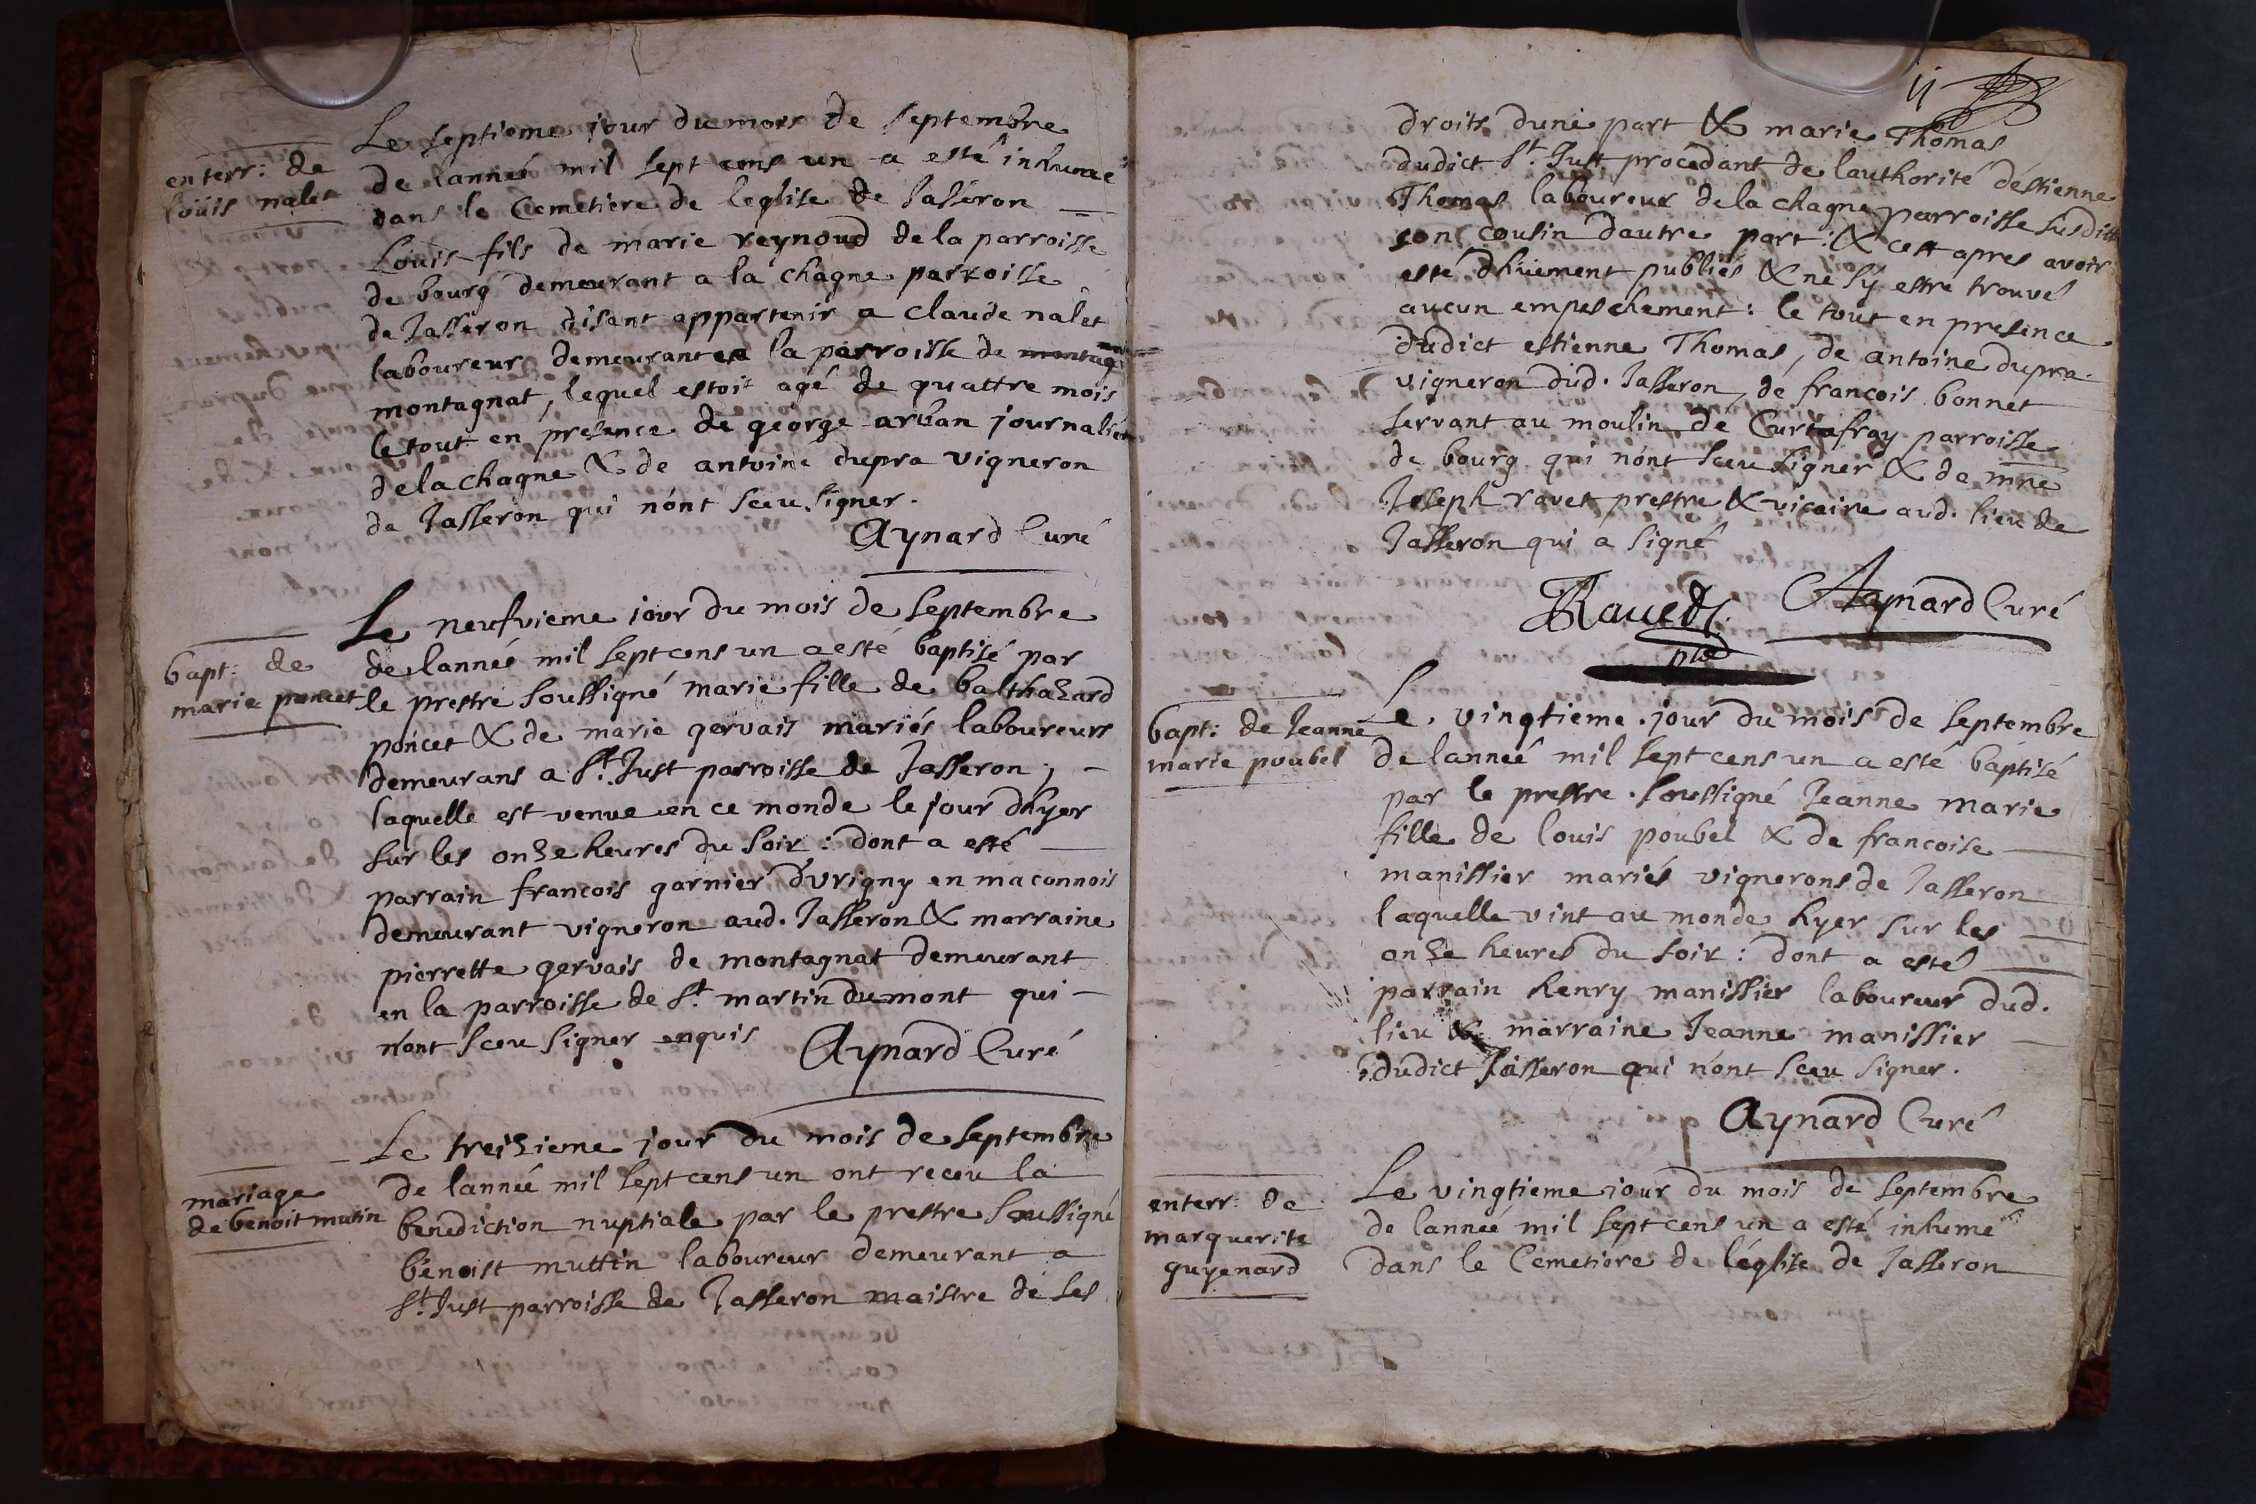 enterr: de
louis nalet
Le septieme jour du mois de septembre
de lanneé mil sept cens un a esté inhumé
dans le Cemetiere de leglise de Jasseron
Louis fils de marie reynoud de la parroisse
de bourg demeurant a la chagne parroisse
de Jasseron disant appartenir a claude nalet
laboureur demeurant en la parroisse de
montagnat, lequel estoit agé de quattre mois
le tout en presence de george arban journalier
de la chagne & de antoine dupra vigneron
de Jasseron qui nónt sceu signer.
Aynard Curé
bapt: de
marie poncet
Le neufvieme jour du mois de septembre
de lanneé mil sept cens un a esté baptisé par
le prestre soussigné marie fille de balthazard
poncet & de marie gervais mariés laboureurs
demeurans a St. Just parroisse de Jasseron;
laquelle est venue en ce monde le jour dhyer
sur les onze heures du soir: dont a esté
parrain francois garnier dVrigny en maconnois
demeurant vigneron aud. Jasseron & marraine
pierrette gervais de montagnat demeurant
en la parroisse de St. martin dumont qui
nónt sceu signer enquis
Aynard Curé
mariage
de benoit mutin
Le treizieme jour du mois de septembre
de lanneé mil sept cens un ont receu la
benediction nuptiale par le prestre soussigné
benoist muttin laboureur demeurant a
St. Just parroisse de Jasseron maistre de ses
ij
droits dune part & marie Thomas
dudict St. Just procedant de lauthorité déstienne
Thomas laboureur de la chagne parroisse susdicte
son cousin dautre part: & cest apres avoir
esté dhuement publiés & ne sy estre trouvé
aucun empeschement: le tout en presence
dudict estienne Thomas, de antoine dupra
vigneron dud. Jasseron, de francois bonnet
servant au moulin de Curtafray parroisse
de bourg qui nónt sceu signer & de mre
Joseph ravet prestre & vicaire aud. lieu de
Jasseron qui a signé
JRavet
ptre
Aynard Curé
bapt: de Jeanne
marie poubel
Le vingtieme jour du mois de septembre
de lanneé mil sept cens un a esté baptisé
par le prestre soussigné Jeanne marie
fille de louis poubel & de francoise
manissier mariés vignerons de Jasseron
laquelle vint au monde hyer sur les
onze heures du soir: dont a esté
parrain henry manissier laboureur dud.
lieu & marraine Jeanne manissier
dudict Jasseron qui nónt sceu signer.
Aynard Curé
enterr: de
marguerite
guyenard
Le vingtieme jour du mois de septembre
de lanneé mil sept cens un a esté inhumé
dans le Cemetiere de léglise de Jasseron